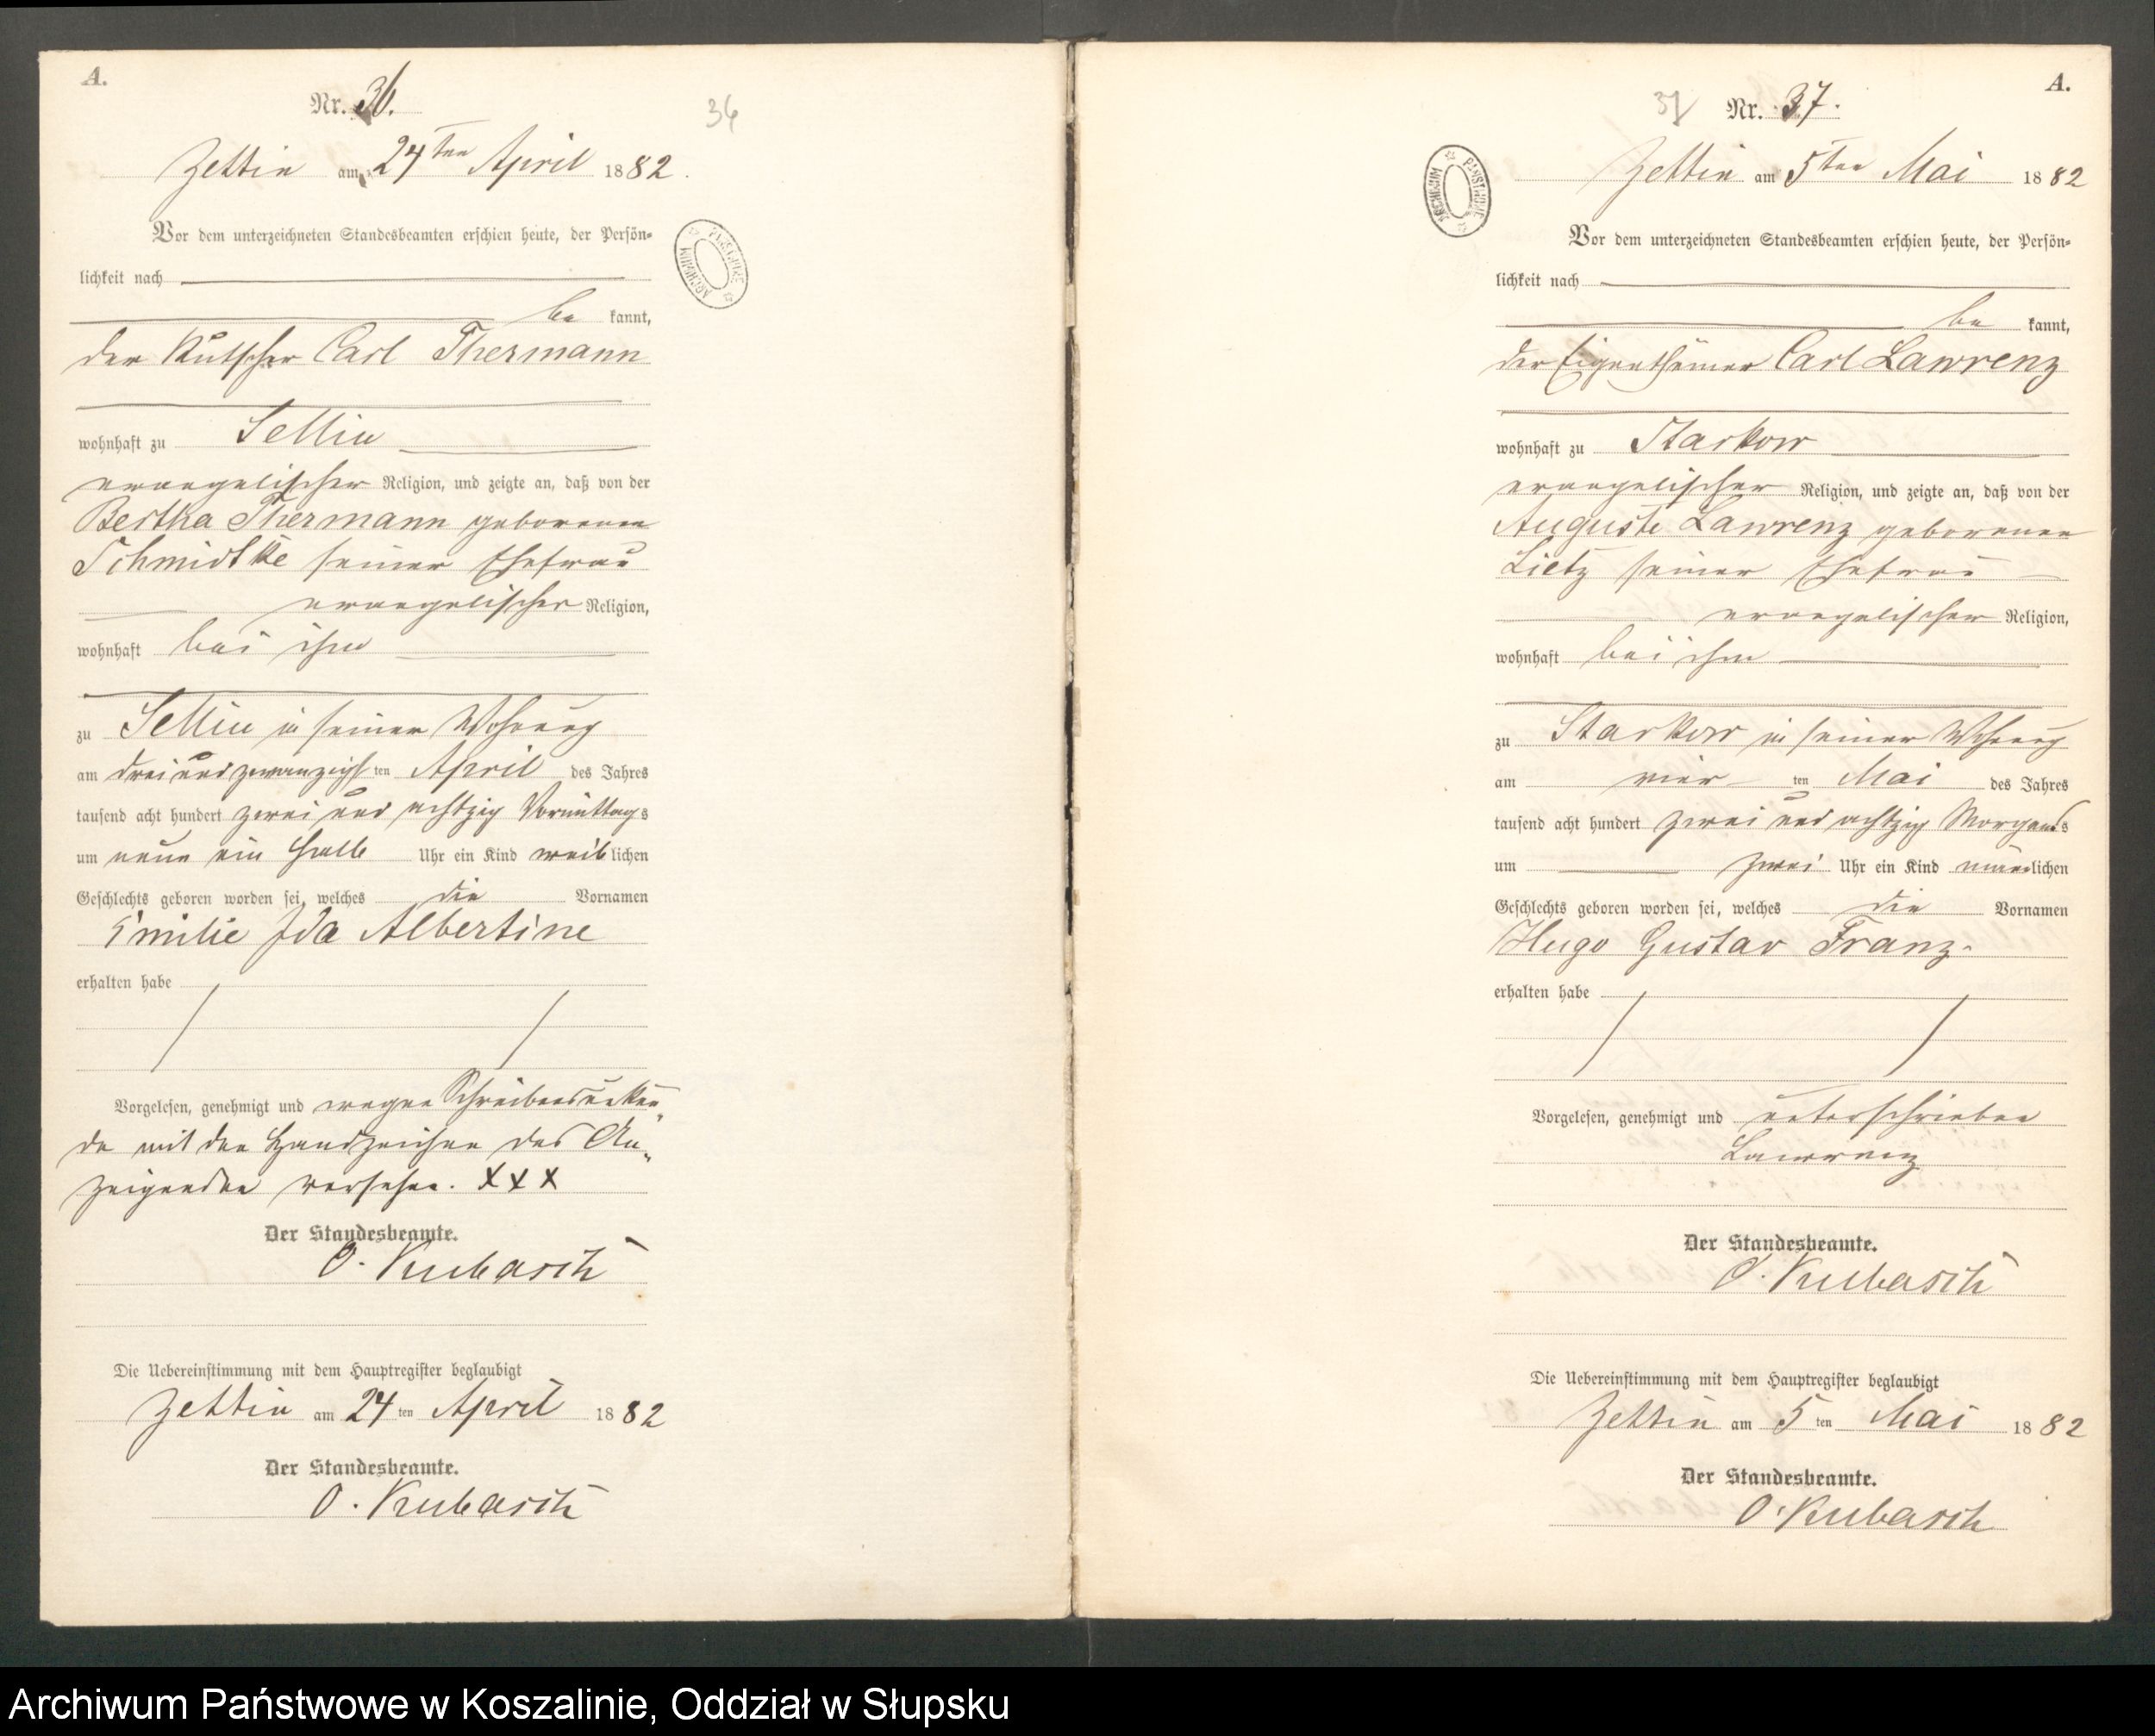 A.
Nr. 36.
36
Zettin am 24ten April 1882.
Vor dem unterzeichneten Standesbeamten erschien heute, der Persön-
lichkeit nach
be kannt,
der Kutscher Carl Thermann
wohnhaft zu Sellin
evangelischer Religion, und zeigte an, daß von der
Bertha Thermann geborenen
Schmidtke seiner Ehefrau
evangelischer Religion,
wohnhaft bei ihm
zu Sellin in seiner Wohnung
am dreiundzwanzigsten April des Jahres
tausend acht hundert zwei und achtzig Vormittags
um neun ein halb Uhr ein Kind weiblichen
Geschlechts geboren worden sei, welches die Vornamen
Emilie Ida Albertine
erhalten habe
Vorgelesen, genehmigt und wegen Schreibensunkun-
de mit den Handzeichen des An-
zeigenden versehen. XXX
Der Standesbeamte.
O. Kubasch
Die Uebereinstimmung mit dem Hauptregister beglaubigt
Zettin am 24ten April 1882
Der Standesbeamte.
O. Kubasch
A.
37 Nr. 37.
ARCHIWUM PAŃSTWOWE
Zettin am 5ten Mai 1882
Vor dem unterzeichneten Standesbeamten erschien heute, der Persön-
lichkeit nach
be kannt,
der Eigenthümer Carl Lawrenz
wohnhaft zu Starkow
evangelischer Religion, und zeigte an, daß von der
Auguste Lawrenz geborenen
Lietz seiner Ehefrau
evangelischer Religion,
wohnhaft bei ihm
zu Starkow in seiner Wohnung
am vierten Mai des Jahres
tausend acht hundert zwei und achtzig Morgens
um zwei Uhr ein Kind männlichen
Geschlechts geboren worden sei, welches die Vornamen
Hugo Gustav Franz.
erhalten habe
Vorgelesen, genehmigt und unterschrieben
Lawrenz
Der Standesbeamte.
O. Kubasch
Die Uebereinstimmung mit dem Hauptregister beglaubigt
Zettin am 5ten Mai 1882
Der Standesbeamte.
O. Kubasch
Archiwum Państwowe w Koszalinie, Oddział w Słupsku